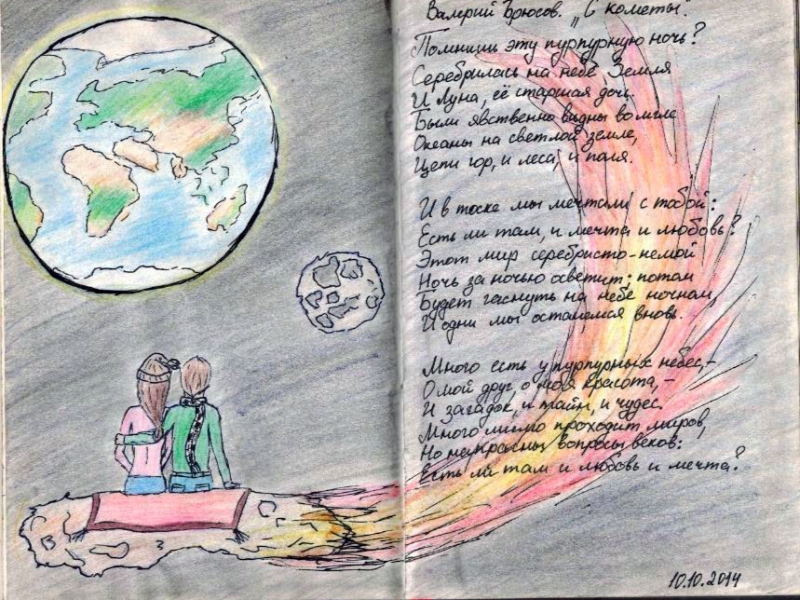 Валерий Брюсов. „С кометы".
Помнишь эту пурпурную ночь?
Серебрилась на небе Земля
И Луна, её старшая дочь.
Были явственно видны во мгле
Океаны на светлой земле,
Цепи гор, и леса, и поля.
И в тоске мы мечтали с тобой:
Есть ли там, и мечта и любовь?
Этот мир серебристо-немой
Ночь за ночью осветит; потом
Будет гаснуть на небе ночном,
И одни мы останемся вновь.
Много есть у пурпурных небес,–
О мой друг, о моя красота,–
И загадок, и тайн, и чудес.
Много мимо проходит миров,
Но напрасны вопросы веков:
Есть ли там и любовь и мечта?
10.10.2014